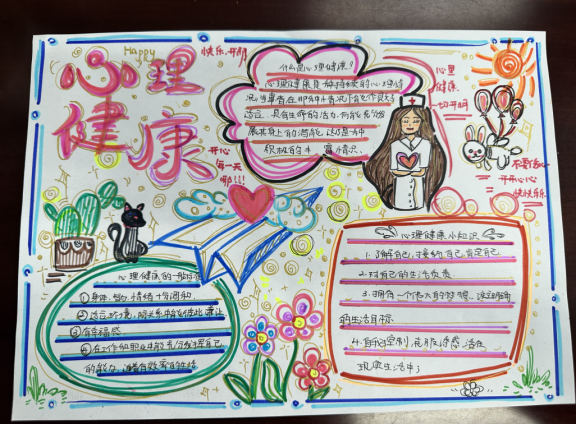 心理
健康
Happy
快乐,开开
什么是心理健康?
心理健康是一种持续的心理情
况,当事者在那种情况下能作良好
适应,具有生命的活力,而能充分发
展其身上的潜能,这乃是一种
积极的丰富情况。
心里
健康
一切开明
开心
每一天
哪!!!
不要伤心
开开心心
快快乐乐
心理健康的一般标准
①身体、智力、情绪十分调和
②适应环境,人际关系中能彼此谦让
③有幸福感
④在工作和职业中能充分发挥自己
的能力,过着有效率的生活
心理健康小知识
1.了解自己,接纳自己,肯定自己
2.对自己的生活负责
3.拥有一个伟大的梦想,
的生活目标
4.自我控制,克服
现实生活中